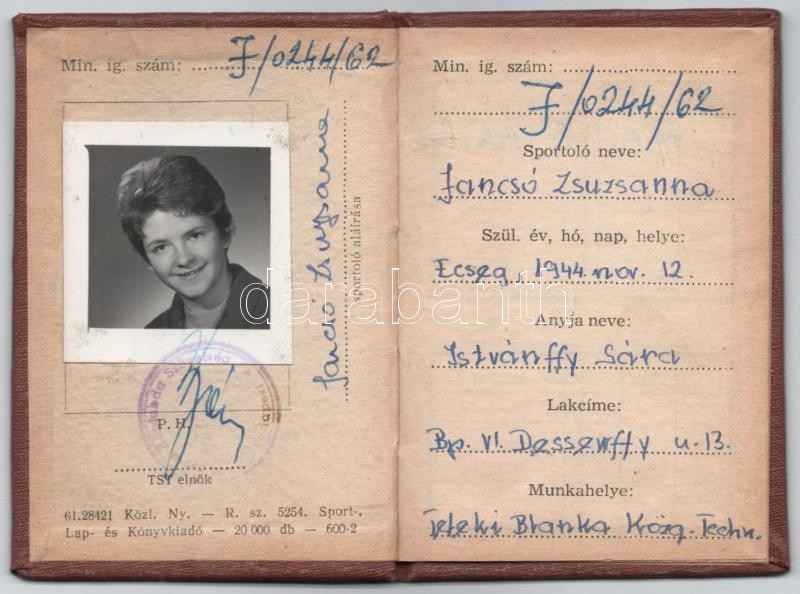 Min. ig. szám: J/0244/62
Jancsó Zsuzsanna
sportoló aláírása
P. H.
TST elnök
61.28421 Közl. Ny. — R. sz. 5254. Sport-,
Lap- és Könyvkiadó — 20 000 db — 600-2
Min. ig. szám:
J/0244/62
Sportoló neve:
Jancsó Zsuzsanna
Szül. év, hó, nap, helye:
Ecseg, 1944. nov. 12.
Anyja neve:
Istvánffy Sára
Lakcíme:
Bp. VI. Dessewffy u. 13.
Munkahelye:
Teleki Blanka Közg. Techn.
darabanth